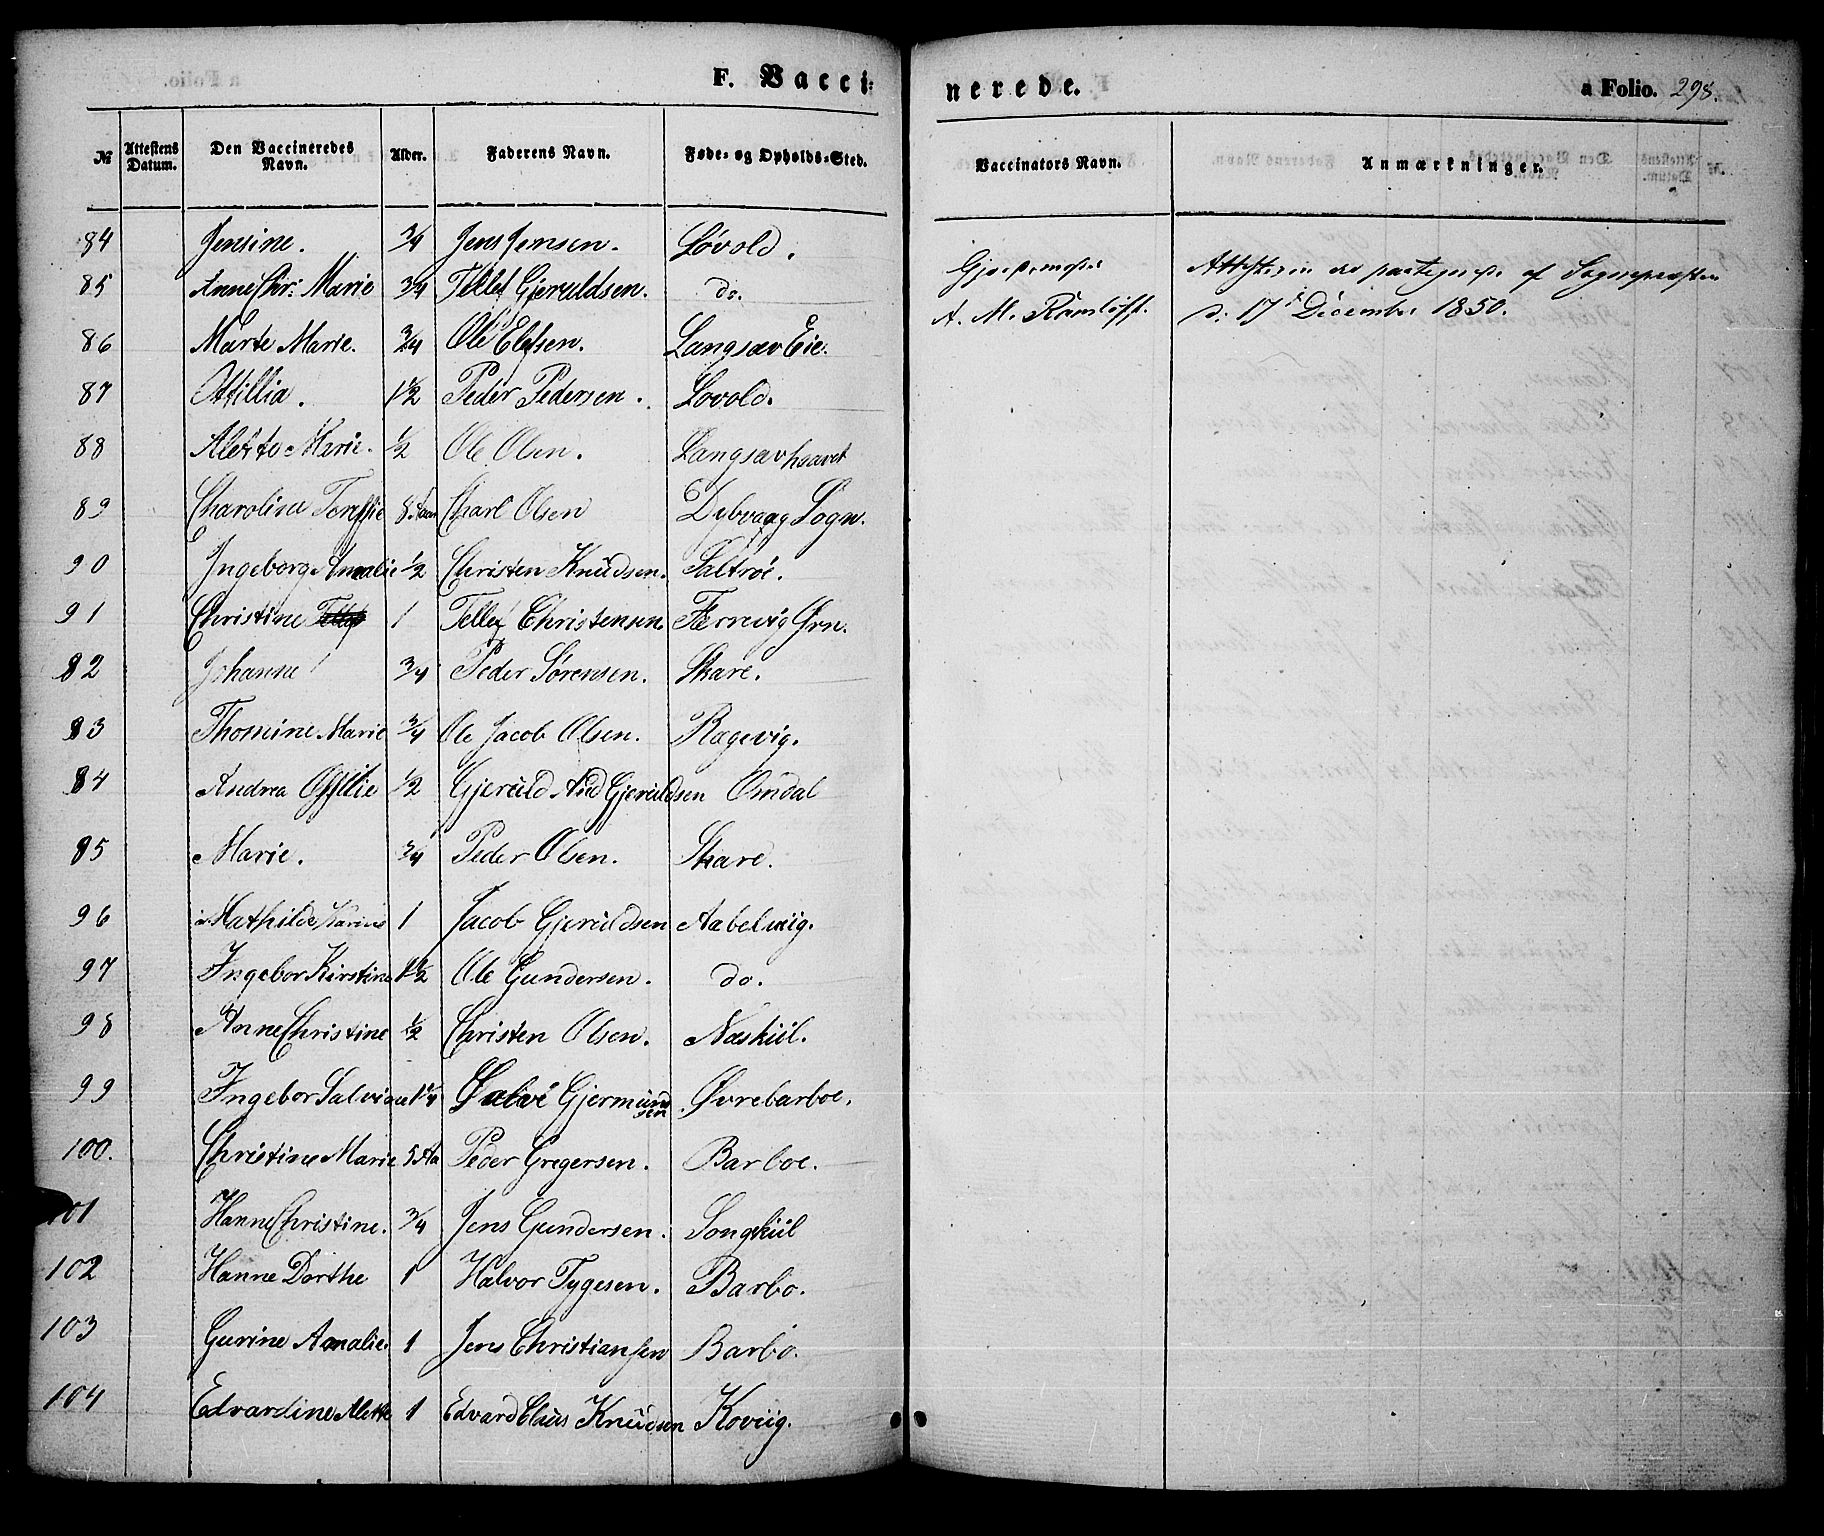 F. Vacci=
nerede.
a Folio. 298.
№ Attestens Datum. Den Vaccineredes Navn. Alder. Faderens Navn. Føde- og Opholds-Sted.
Vaccinators Navn. Anmærkninger.
84 Jensine. 3/4 Jens Jensen. Løvold.
85 Anne Chr: Marie 3/4 Tellef Gjeruldsen. do.
86 Marte Marie. 3/4 Ole Elefsen. Langsæv Eie.
87 Ottillia. 1 1/2 Peder Pedersen. Lovold.
88 Alette Marie. 1/2 Ole Olsen. Langsævhaavet
89 Charolina Tereffie 8 Aar Charl Olsen Dybvaag Sogn.
90 Ingeborg Amalie 1/2 Christen Knudsen. Saltrøe.
91 Christine 1 Tellef Christensen. Færrevig Grn.
82 Johanne 3/4 Peder Sørensen. Skare.
83 Thomine Marie 3/4 Ole Jacob Olsen. Ragevig.
84 Andrea 1/2 Gjeruld And Gjeruldsen Omdal
85 Marie. 3/4 Peder Olsen. Skare.
96 Mathilde Karine 1 Jacob Gjeruldsen Aabelviig.
97 Ingebor Kirstine 1 1/2 Ole Gundersen. do.
98 Anne Christine 1/2 Christen Olsen. Næskiil.
99 Ingebor Salvine 1 1/4 Salve Gjermundsen Øvrebarboe.
100. Christine Marie 5 Aa Peder Gregersen. Barboe.
101 Hanne Christine. 3/4 Jens Gundersen. Songekiil
102 Hanne Dorthe 1 Halvor Tygesen. Barbo.
103 Gurine Amalie. 1 Jens Christiansen Barbo.
104 Edvardine Alette 1 Edvard Claus Knudsen Koviig.
A. M. Romløff.
af Sognepræsten
d. 17d December 1850.